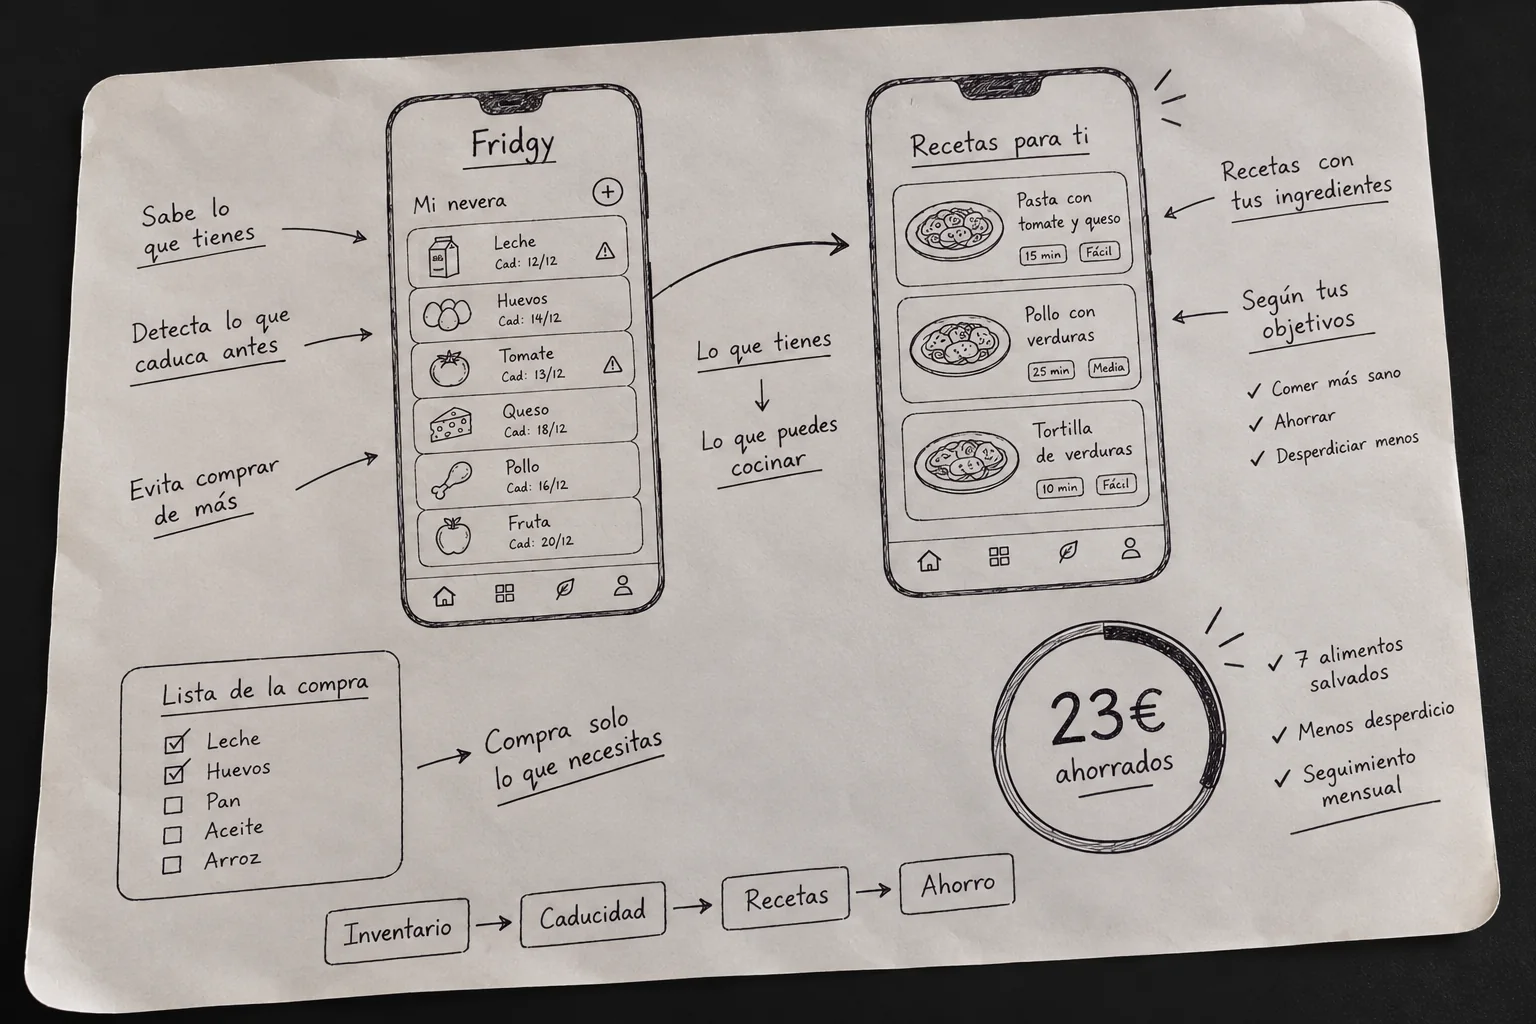 Sabe lo
que tienes
Detecta lo que
caduca antes
Evita comprar
de más
Fridgy
Mi nevera
Leche
Cad: 12/12
Huevos
Cad: 14/12
Tomate
Cad: 13/12
Queso
Cad: 18/12
Pollo
Cad: 16/12
Fruta
Cad: 20/12
Lo que tienes
Lo que puedes
cocinar
Recetas para ti
Pasta con
tomate y queso
15 min Fácil
Pollo con
verduras
25 min Media
Tortilla
de verduras
10 min Fácil
Recetas con
tus ingredientes
Según tus
objetivos
✓ Comer más sano
✓ Ahorrar
✓ Desperdiciar menos
Lista de la compra
Leche
Huevos
Pan
Aceite
Arroz
Compra solo
lo que necesitas
23€
ahorrados
✓ 7 alimentos
salvados
✓ Menos desperdicio
✓ Seguimiento
mensual
Inventario → Caducidad → Recetas → Ahorro